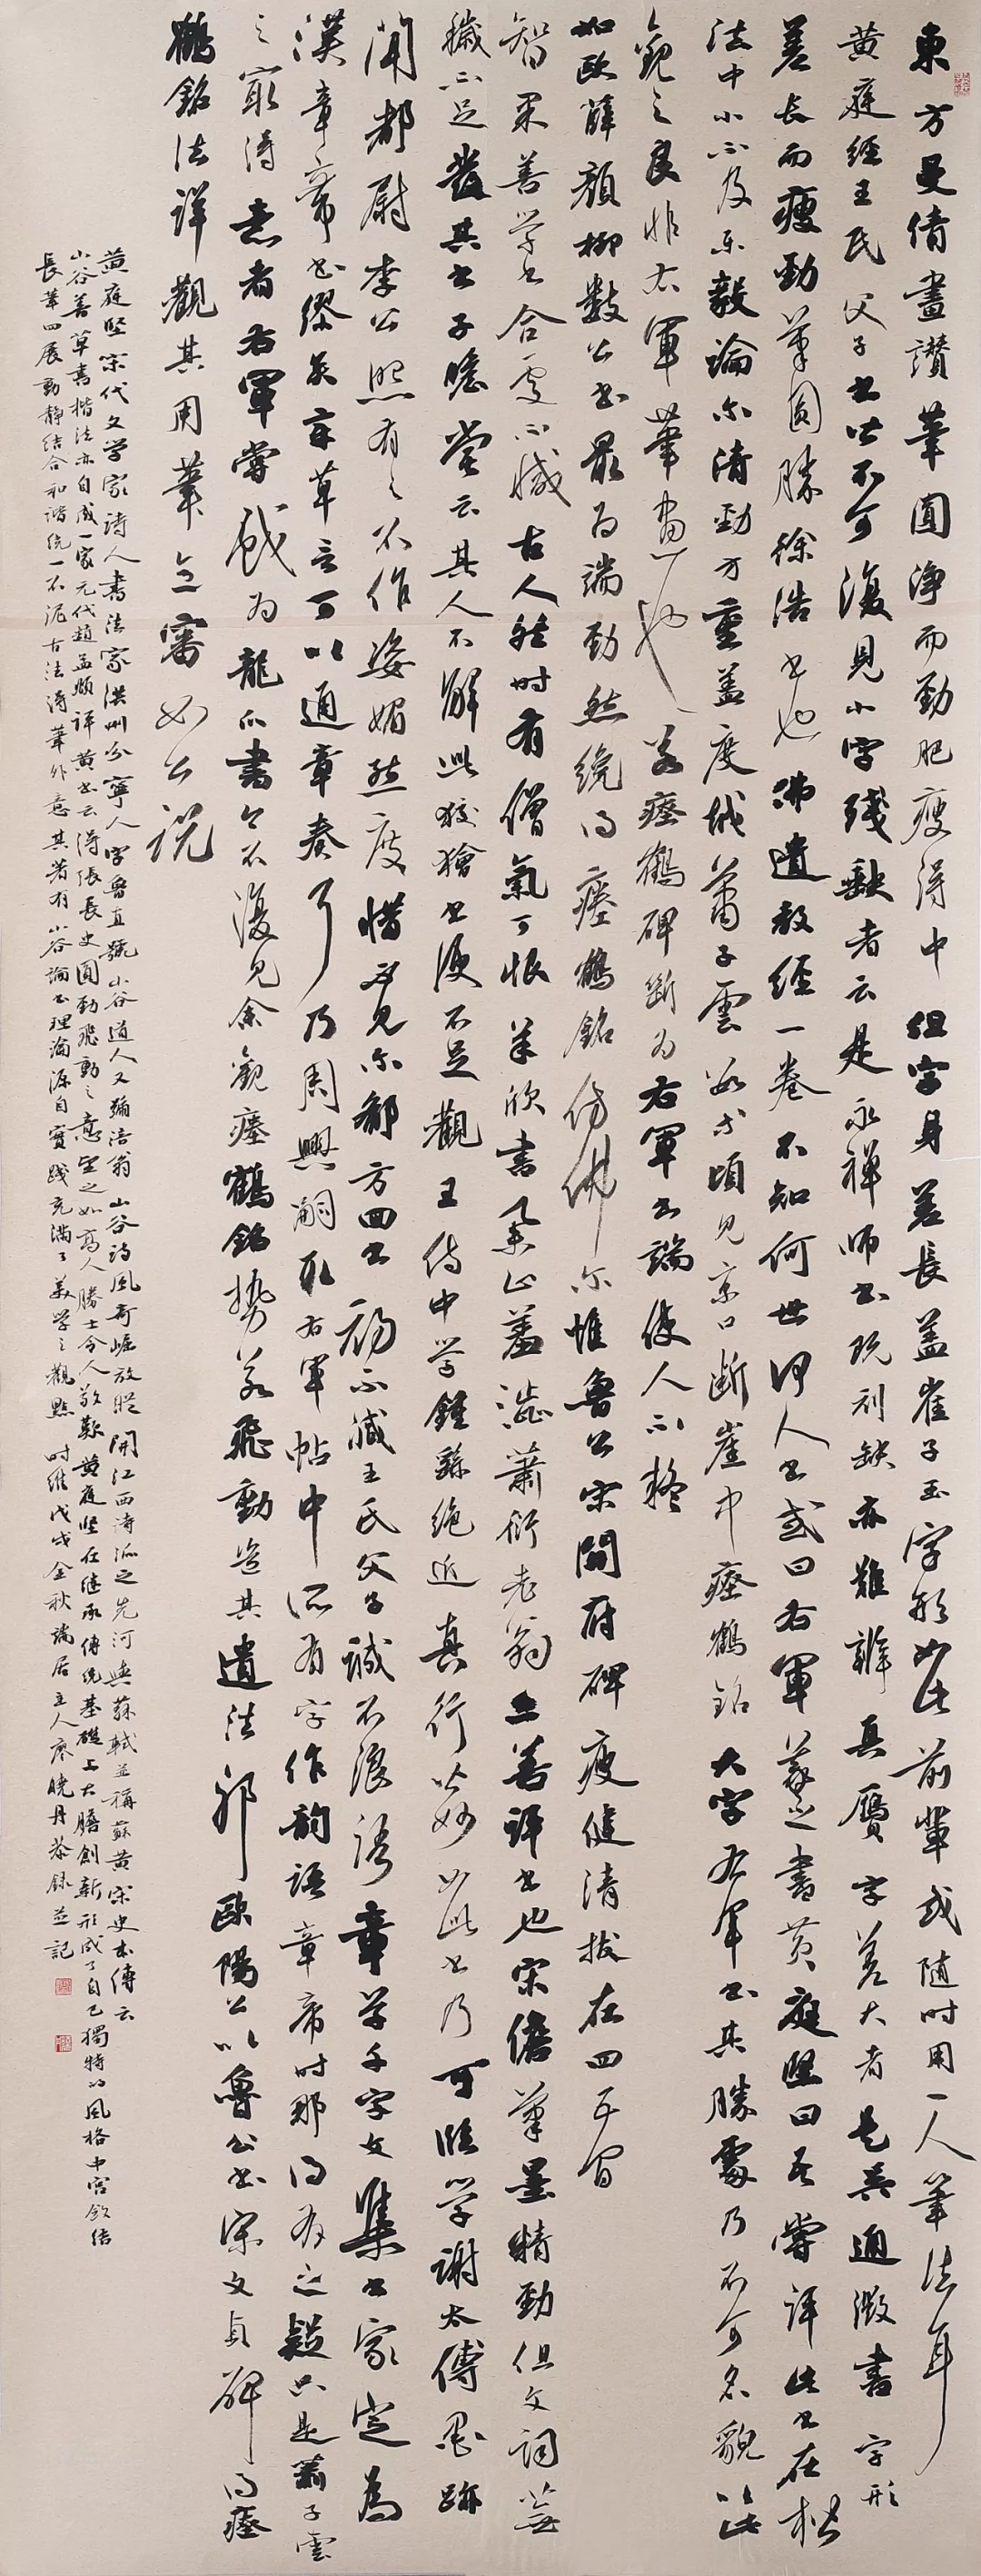 東方曼倩畫讚筆圓淨而勁肥瘦得中但字身差長蓋崔子玉字形如此前輩或隨時用一人筆法耳
黃庭經王氏父子書皆不可復見小字殘缺者云是永禪師書既刓缺亦難辯真贗字差大者是吳通微書字形
差長而瘦勁筆圓勝徐浩書也佛遺教經一卷不知何世何人書或曰右軍羲之書黃庭堅曰吾嘗評此書在楷
法中小不及樂毅論爾清勁方重蓋度越蕭子雲數等頃見京口斷崖中瘞鶴銘大字右軍書其勝處乃不可名貌以此
觀之良非右軍筆畫也若瘞鶴碑斷為右軍書端使人不疑
如歐薛顏柳數公書最為端勁然纔得瘞鶴銘仿佛爾惟魯公宋開府碑瘦健清拔在四五間
智果善學書合處不減古人然時有僧氣可恨羊欣書舉止羞澀蕭衍老翁亦善評書也宋儋筆墨精勁但文詞蕪
穢不足發其書子瞻嘗云其人不解此狡獪書便不足觀王侍中學鍾繇絕近真行皆妙如此書乃可臨學謝太傅墨跡
聞都尉李公照有之不作姿媚態度惜不見爾郗方回書初不減王氏父子誠不浪語章草千字文集書家定為
漢章帝書繆矣章草言可以通章奏耳乃周興嗣取右軍帖中所有字作韻語章帝時那得有之疑只是蕭子雲
之最得意者右軍嘗戲為龍爪書今不復見余觀瘞鶴銘勢若飛動豈其遺法邪歐陽公以魯公書宋文貞碑得瘞
鶴銘法詳觀其用筆意審如公說
黃庭堅宋代文學家詩人書法家洪州分寧人字魯直號山谷道人又號涪翁山谷詩風奇崛放縱開江西詩派之先河與蘇軾並稱蘇黃宋史本傳云
山谷善草書楷法亦自成一家元代趙孟頫評黃書云得張長史圓勁飛動之意望之如高人勝士令人敬歎黃庭堅在繼承傳統基礎上大膽創新形成了自己獨特的風格中宮斂結
長筆四展動靜結合和諧統一不泥古法得筆外意其著有山谷論書理論源自實踐充滿了美學之觀點時維戊戌金秋端居主人廖曉丹恭錄並記